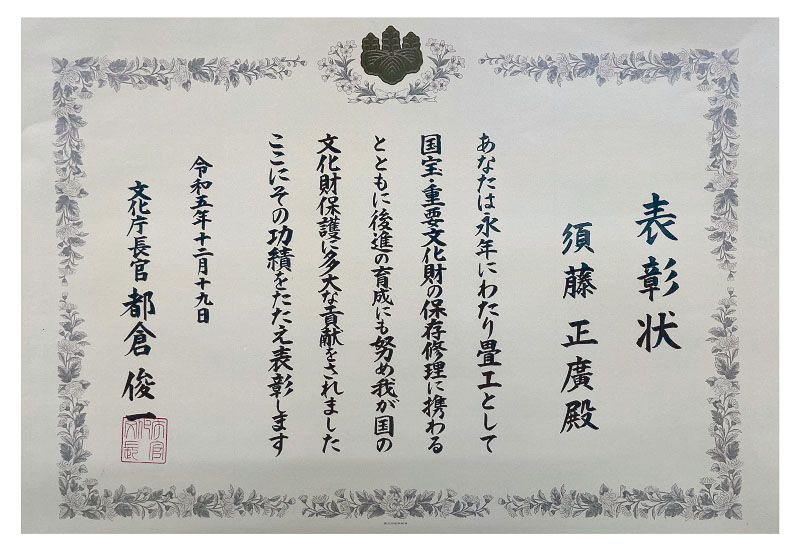 表彰状
須藤正廣殿
あなたは永年にわたり畳工として
国宝・重要文化財の保存修理に携わる
とともに後進の育成にも努め我が国の
文化財保護に多大な貢献をされました
ここにその功績をたたえ表彰します
令和五年十二月十九日
文化庁長官 都倉俊一